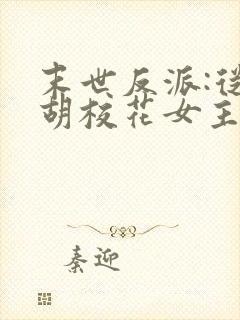 末世反派:从
胡校花女主
秦迎